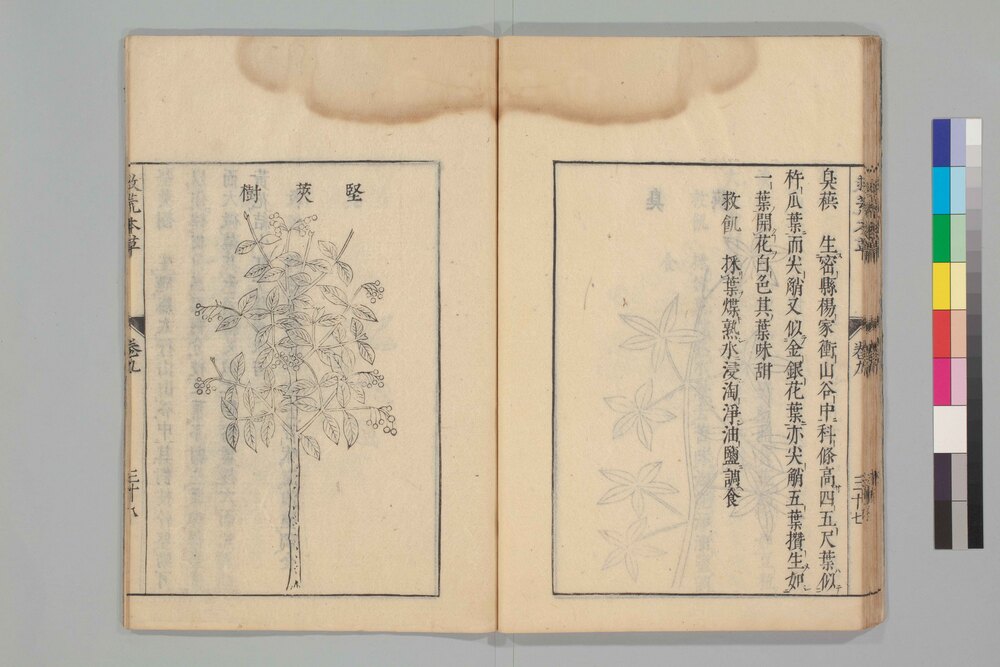 臭蕻　生密縣楊家衝山谷中科條高四五尺葉似
杵瓜葉而尖艄又似金銀花葉亦尖艄五葉攢生如
一葉開花白色其葉味甜
救飢　採葉煠熟水浸淘淨油鹽調食
卷九
三十七
堅莢樹
救荒本草
卷九
三十八